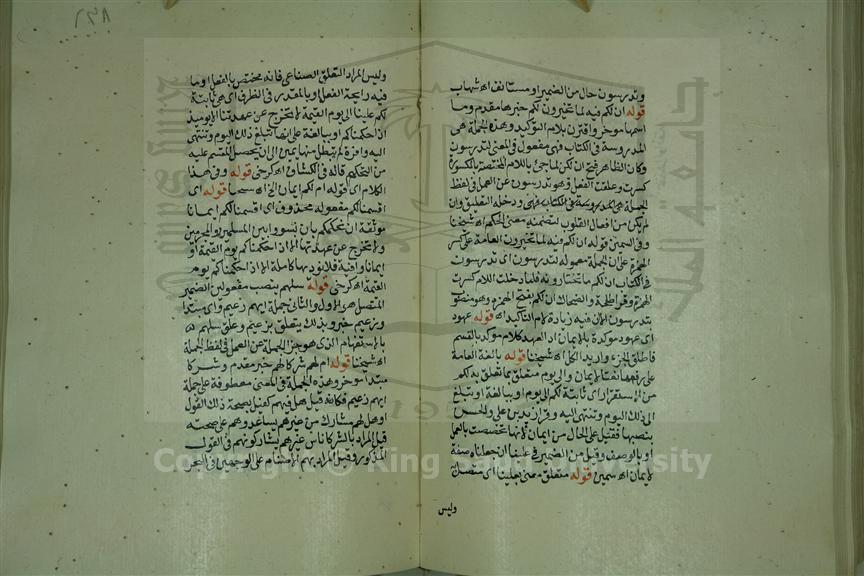 وتدرسون حال من الضمير او مستانف اه شهاب
قوله ان لكم فيه لما تخيرون لكم خبرها مقدم وما
اسمها موخر واقترن بلام التوكيد وهذه الجملة هي
المدروسة في الكتاب فهي مفعول في المعنى لتدرسون
وكان الظاهر فتح ان لكن لما جئ باللام المختصة بالمكسورة
كسرت وعلقت الفعل وهو تدرسون عن العمل في لفظ
الجملة في الكتاب فهي ودخله التعليق وان
لم يكن من افعال القلوب لتضمنه معنى الحكم اه شيخنا
وفي السمين قوله ان لكم فيه لما تخيرون العامة على كسر
الهمزة على ان الجملة معموله لتدرسون اي تدرسون
في الكتاب ان لكم ما تختارونه فلما دخلت اللام كسرت
الهمزة وقرا طلحة والضحاك ان لكم بفتح الهمزة وهو منصوب
بتدرسون الا ان فيه زيادة لام التاكيد اه قوله عهود
اي عهود موكدة بالايمان اذ العهد كلام موكد بالقسم
فاطلق الجزء واريد الكل اه شيخنا قوله بالغة العامة
على رفعها نعتا لايمان والى يوم متعلق بما تعلق به لكم
من الاستقرار اي ثابتة لكم الى يوم او ببالغة او تبلغ
الى ذلك اليوم وتنتهي اليه وقرا زيد بن علي والحسن
بنصبها فقيل على الحال من ايمان لانها تخصصت بالعمل
او بالوصف وقيل من الضمير في علينا ان جعلناه صفة
لايمان اه سمين قوله متعلق معنى بعلينا اي متصل
وليس
٢٣٨
وليس المراد التعلق الصناعي فانه مختص بالفعل او ما
فيه رايحة الفعل او بالمقدر في الظرف اي هي ثابتة
لكم علينا الى يوم القيمة لا تخرج عن عهدتها الا يوميذ
اذا حكمناكم او بالغة على انها تبلغ ذلك اليوم وتنتهي
اليه وافرة لم تبطل منها يمين الى ان يحصل المقسم عليه
من التحكيم قاله في الكشاف اه كرخي قوله وفي هذا
الكلام اي قوله ام لكم ايمان الخ اه قوله اي
اقسمنا لكم مفعوله محذوف اي اقسمنا لكم ايمانا
موثقة ان نحكمكم بان تسووا بين المسلمين والمجرمين
ولا نخرج عن عهدتها الا اذا حكمناكم يوم القيمة او
ايمانا وافية كاملة الا اذا حكمناكم يوم
القيمة اه كرخي قوله سلهم ينصب مفعولين الضمير
المتصل هو الاول والثاني جملة ايهم زعيم واي مبتدا
وزعيم خبر وبذلك يتعلق بزعيم وعلق سلهم
بالاستفهام الذي هو جزء الجملة عن العمل في لفظ الجملة
اه شيخنا قوله ام لهم شركا لهم خبر مقدم وشركا
مبتدا موخر وهذه الجملة في المعنى معطوفة على جملة
ايهم زعيم فكانه قيل هل فيهم كفيل بصحة ذلك القول
او هل لهم مشارك من غيرهم يساعدوهم على صحته
قيل المراد بالشركا ناس غيرهم يشاركونهم في القول
المذكور وقيل المراد بهم الاصنام على الوجهين في البحر
Copyright © King Saud University
جامعة الملك سعود